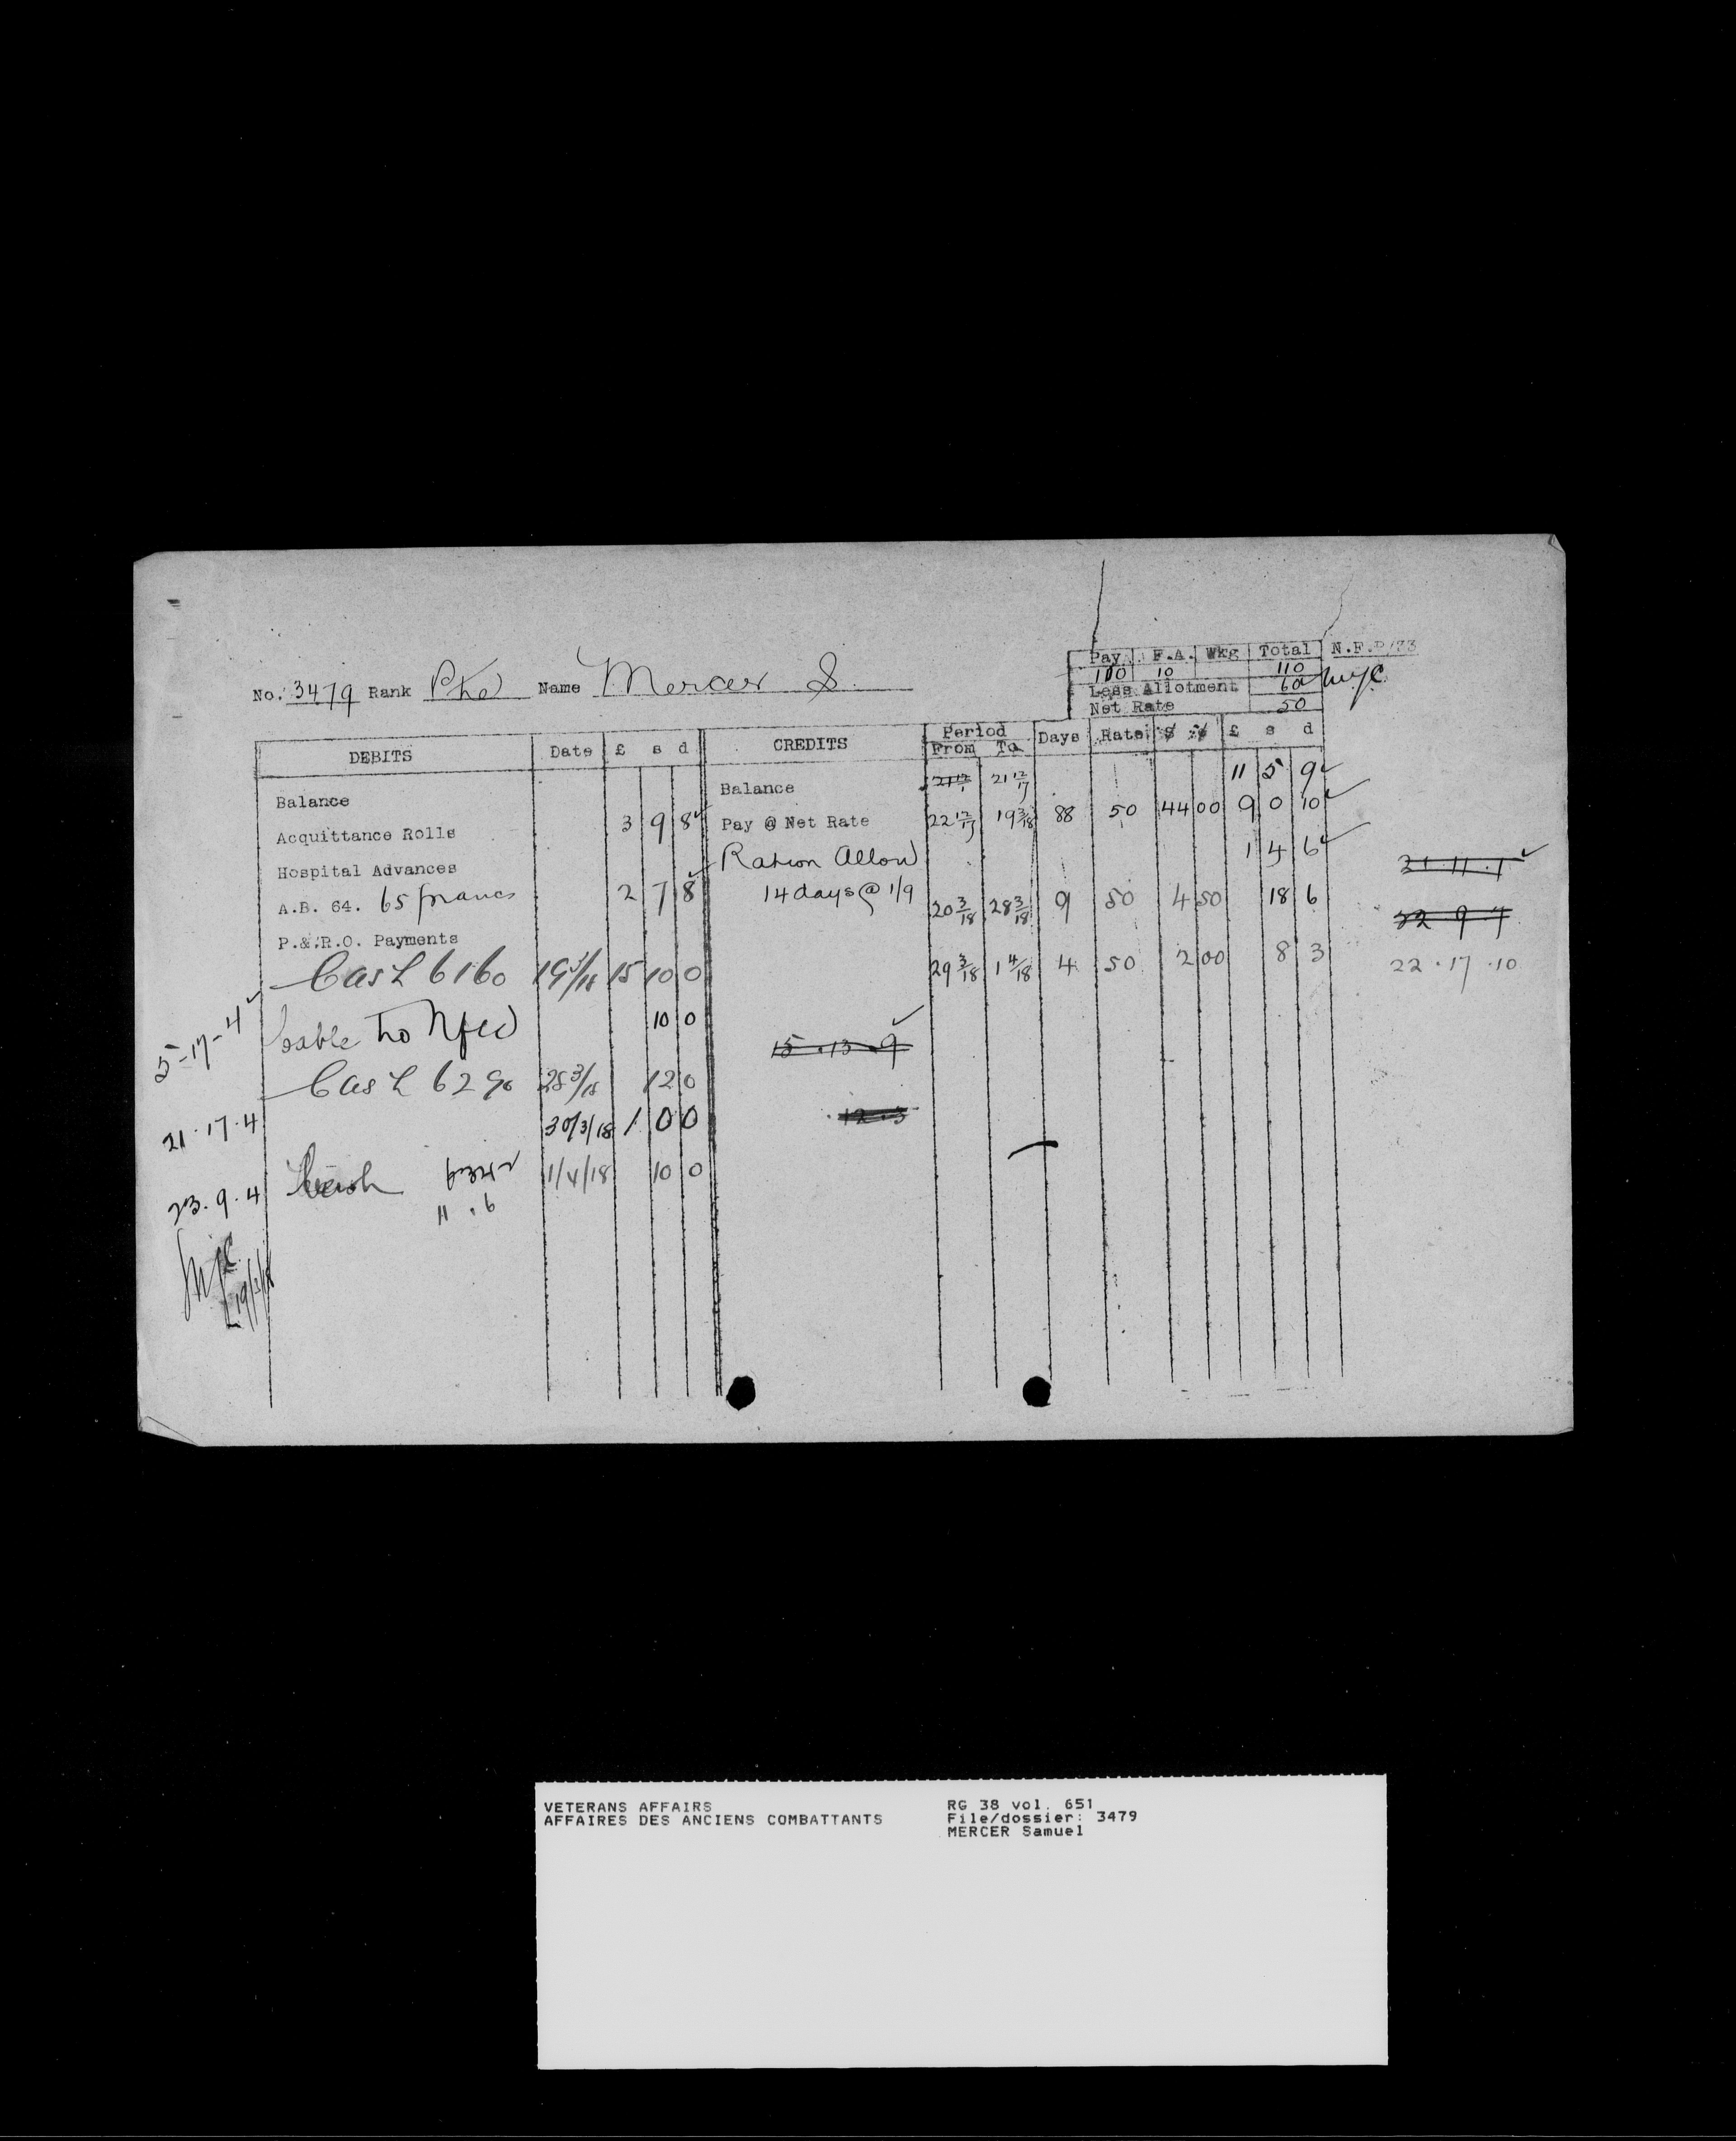 Pay F.A. Wkg Total N.F.P/33
100 10 110
Less Allotment 60
Net Rate 50
No. 3479 Rank Pte Name Mercer S.
DEBITS Date £ s d CREDITS Period From To Days Rate $ £ s d
Balance
Acquittance Rolls 3 9 8
Hospital Advances
A.B. 64. 65 francs 2 7 8
P.&.R.O. Payments
Cash 6160 19/3/18 15 10 0
Cable to Nfld 10 0
Cash 6290 28 3/18 12 0
30/3/18 1 0 0
Cash 1/4/18 10 0
11 . 6
5-17-4
21.17.4
23.9.4
19/3/18
Balance 21 12/17 11 5 9
Pay @ Net Rate 22 12/17 19 3/18 88 50 44 00 9 0 10
Ration Allow 1 4 6
14 days @ 1/9
20 3/18 28 3/18 9 50 4 50 18 6
29 3/18 1 4/18 4 50 2 00 8 3
15.13.9
12.3
21.11.1
22 9 7
22.17.10
VETERANS AFFAIRS
AFFAIRES DES ANCIENS COMBATTANTS
RG 38 vol. 651
File/dossier: 3479
MERCER Samuel